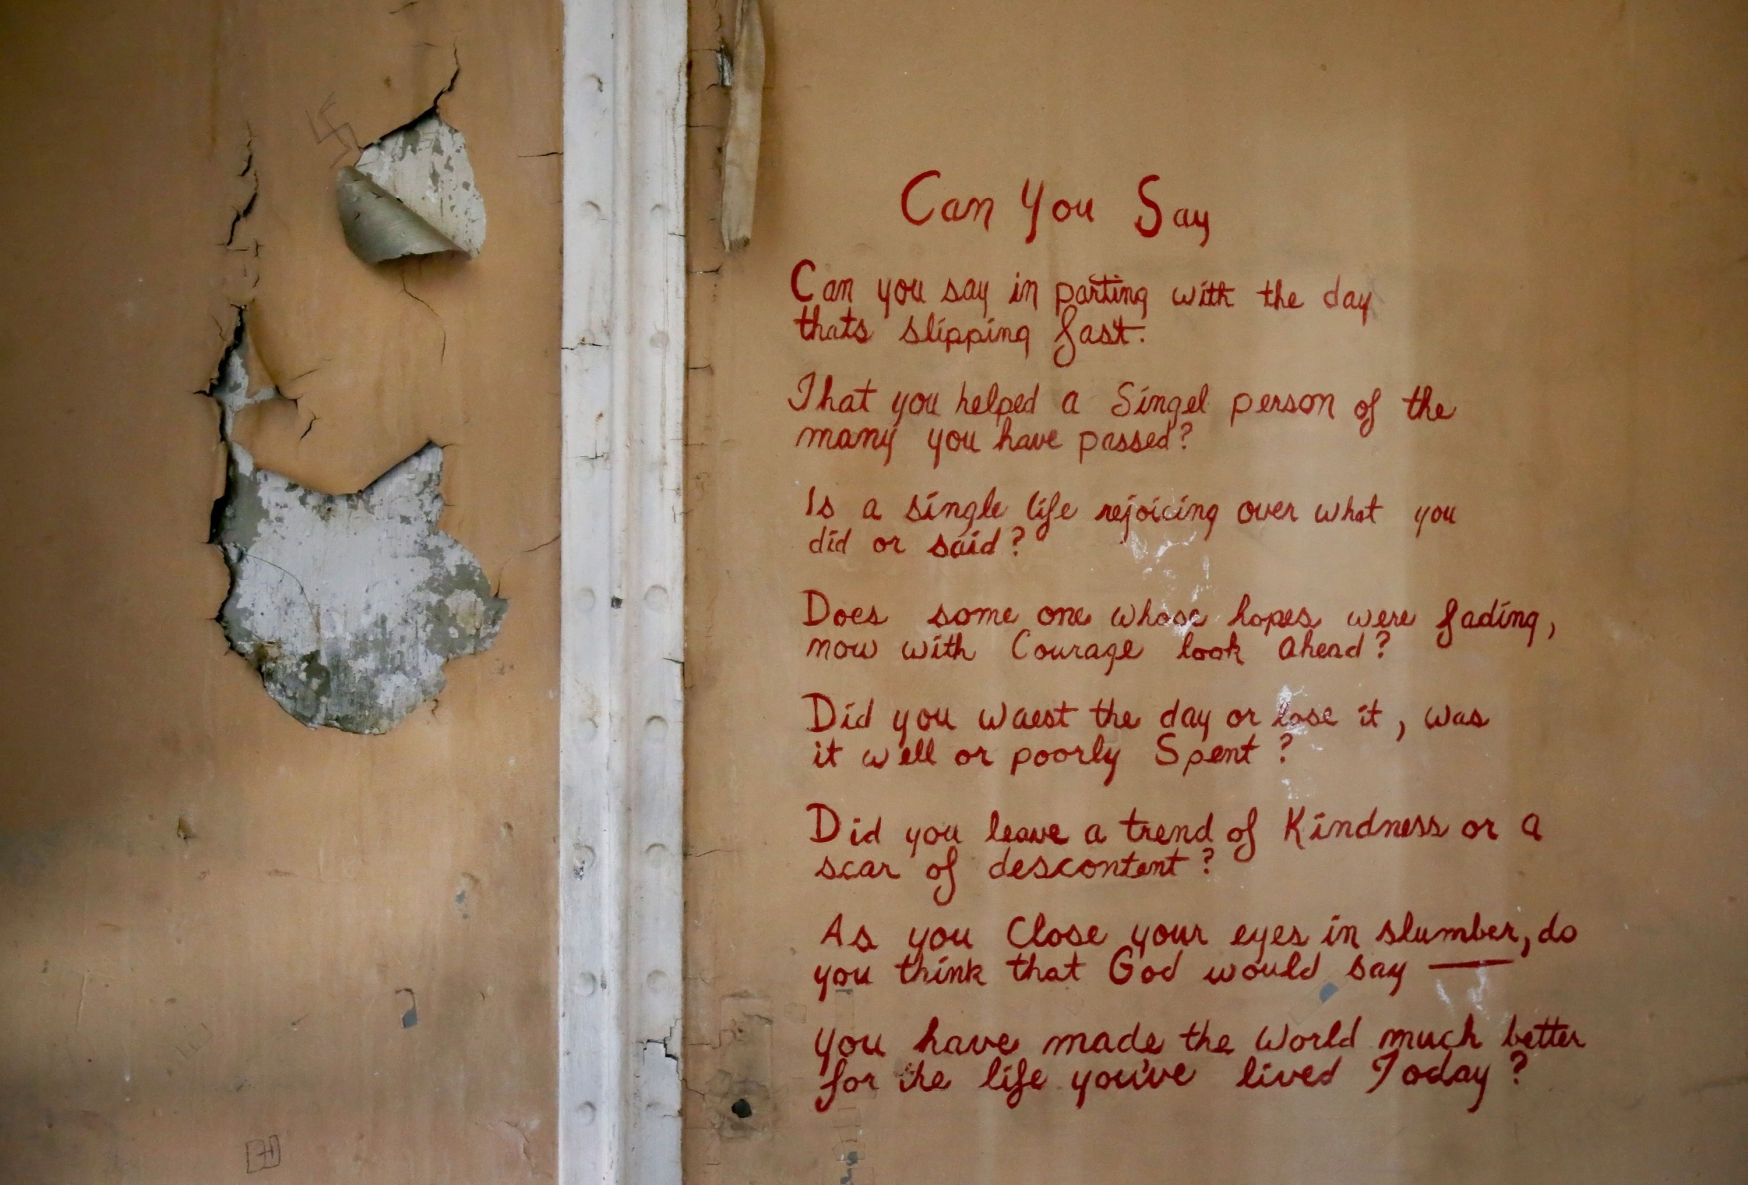 Can You Say
Can you say in parting with the day
thats slipping fast.
That you helped a Singel person of the
many you have passed?
Is a single life rejoicing over what you
did or said?
Does some one whose hopes were fading,
now with Courage look ahead?
Did you waest the day or lose it, was
it well or poorly Spent?
Did you leave a trend of Kindness or a
scar of descontent?
As you Close your eyes in slumber, do
you think that God would say —
you have made the World much better
for the life you've lived Today?